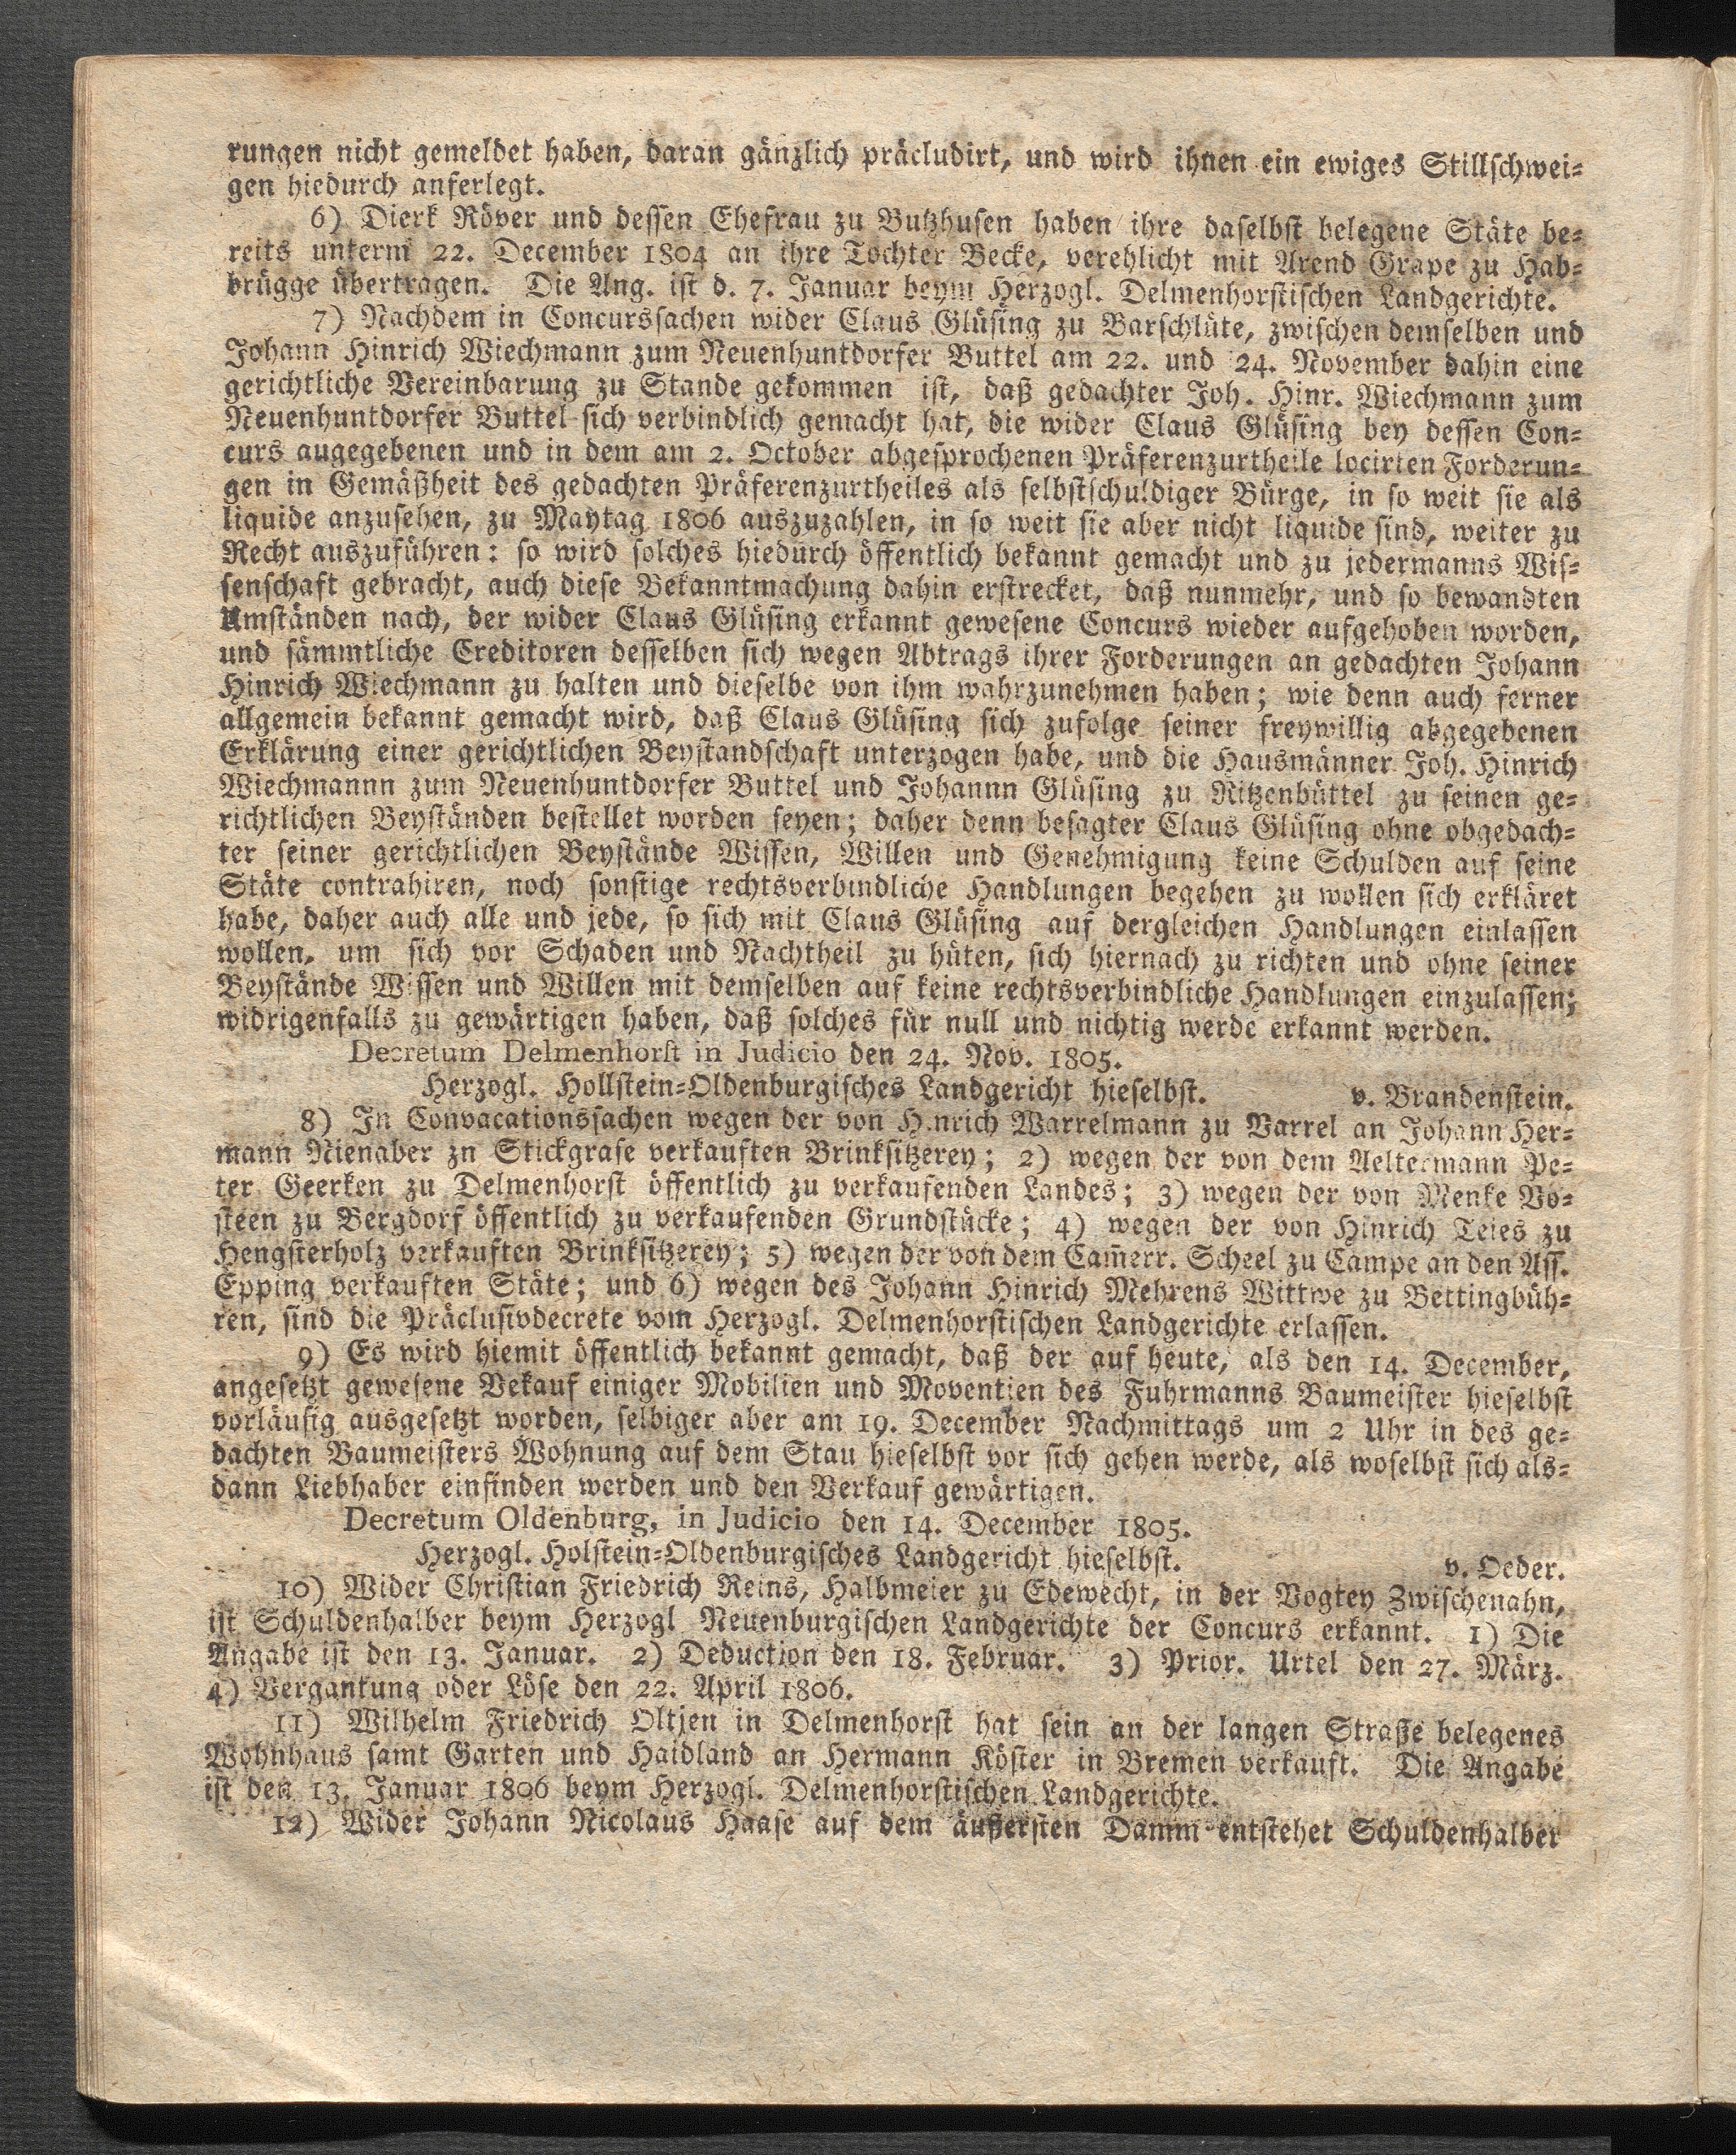 rungen nicht gemeldet haben, daran gänzlich präcludirt, und wird ihnen ein ewiges Stillschwei-
gen hiedurch anferlegt.
6) Dierk Röver und dessen Ehefrau zu Butzhusen haben ihre daselbst belegene Stäte be-
reits unterm 22. December 1804 an ihre Tochter Becke, verehlicht mit Arend Grape zu Hab-
brügge übertragen. Die Ang. ist d. 7. Januar beym Herzogl. Delmenhorstischen Landgerichte.
7) Nachdem in Concurssachen wider Claus Glüsing zu Barschlüte, zwischen demselben und
Johann Hinrich Wiechmann zum Neuenhuntdorfer Buttel am 22. und 24. November dahin eine
gerichtliche Vereinbarung zu Stande gekommen ist, daß gedachter Joh. Hinr. Wiechmann zum
Neuenhuntdorfer Buttel sich verbindlich gemacht hat, die wider Claus Glüsing bey dessen Con-
curs augegebenen und in dem am 2. October abgesprochenen Präferenzurtheile locirten Forderun-
gen in Gemäßheit des gedachten Präferenzurtheiles als selbstschuldiger Bürge, in so weit sie als
liquide anzusehen, zu Maytag 1806 auszuzahlen, in so weit sie aber nicht liquide sind, weiter zu
Recht auszuführen: so wird solches hiedurch öffentlich bekannt gemacht und zu jedermanns Wis-
senschaft gebracht, auch diese Bekanntmachung dahin erstrecket, daß nunmehr, und so bewandten
Umständen nach, der wider Claus Glüsing erkannt gewesene Concurs wieder aufgehoben worden,
und sämmtliche Creditoren desselben sich wegen Abtrags ihrer Forderungen an gedachten Johann
Hinrich Wiechmann zu halten und dieselbe von ihm wahrzunehmen haben; wie denn auch ferner
allgemein bekannt gemacht wird, daß Claus Glüsing sich zufolge seiner freywillig abgegebenen
Erklärung einer gerichtlichen Beystandschaft unterzogen habe, und die Hausmänner Joh. Hinrich
Wiechmannn zum Neuenhuntdorfer Buttel und Johannn Glüsing zu Ritzenbüttel zu seinen ge-
richtlichen Beyständen bestellet worden seyen; daher denn besagter Claus Glüsing ohne obgedach-
ter seiner gerichtlichen Beystände Wissen, Willen und Genehmigung keine Schulden auf seine
Stäte contrahiren, noch sonstige rechtsverbindliche Handlungen begehen zu wollen sich erkläret
habe, daher auch alle und jede, so sich mit Claus Glüsing auf dergleichen Handlungen einlassen
wollen, um sich vor Schaden und Nachtheil zu hüten, sich hiernach zu richten und ohne seiner
Beystände Wissen und Willen mit demselben auf keine rechtsverbindliche Handlungen einzulassen;
widrigenfalls zu gewärtigen haben, daß solches für null und nichtig werde erkannt werden.
Decretum Delmenhorst in Judicio den 24. Nov. 1805.
Herzogl. Hollstein-Oldenburgisches Landgericht hieselbst. v. Brandenstein.
8) In Convacationssachen wegen der von Hinrich Warrelmann zu Varrel an Johann Her-
mann Nienaber zn Stickgrase verkauften Brinksitzerey; 2) wegen der von dem Aeltermann Pe-
ter Geerken zu Delmenhorst öffentlich zu verkaufenden Landes; 3) wegen der von Menke Vo-
steen zu Bergdorf öffentlich zu verkaufenden Grundstücke; 4) wegen der von Hinrich Teies zu
Hengsterholz verkauften Brinksitzerey; 5) wegen der von dem Cam̄err. Scheel zu Campe an den Ass.
Epping verkauften Stäte; und 6) wegen des Johann Hinrich Mehrens Wittwe zu Bettingbüh-
ren, sind die Präclusivdecrete vom Herzogl. Delmenhorstischen Landgerichte erlassen.
9) Es wird hiemit öffentlich bekannt gemacht, daß der auf heute, als den 14. December,
angesetzt gewesene Vekauf einiger Mobilien und Moventien des Fuhrmanns Baumeister hieselbst
vorläufig ausgesetzt worden, selbiger aber am 19. December Nachmittags um 2 Uhr in des ge-
dachten Baumeisters Wohnung auf dem Stau hieselbst vor sich gehen werde, als woselbst sich als-
dann Liebhaber einfinden werden und den Verkauf gewärtigen.
Decretum Oldenburg, in Judicio den 14. December 1805.
Herzogl. Holstein-Oldenburgisches Landgericht hieselbst. v. Oeder.
10) Wider Christian Friedrich Reins, Halbmeier zu Edewecht, in der Vogtey Zwischenahn,
ist Schuldenhalber beym Herzogl Neuenburgischen Landgerichte der Concurs erkannt. 1) Die
Angabe ist den 13. Januar. 2) Deduction den 18. Februar. 3) Prior. Urtel den 27. März.
4) Vergantung oder Löse den 22. April 1806.
11) Wilhelm Friedrich Oltjen in Delmenhorst hat sein an der langen Straße belegenes
Wohnhaus samt Garten und Haidland an Hermann Köster in Bremen verkauft. Die Angabe
ist den 13. Januar 1806 beym Herzogl. Delmenhorstischen Landgerichte.
12) Wider Johann Nicolaus Haase auf dem äußersten Damm entstehet Schuldenhalber